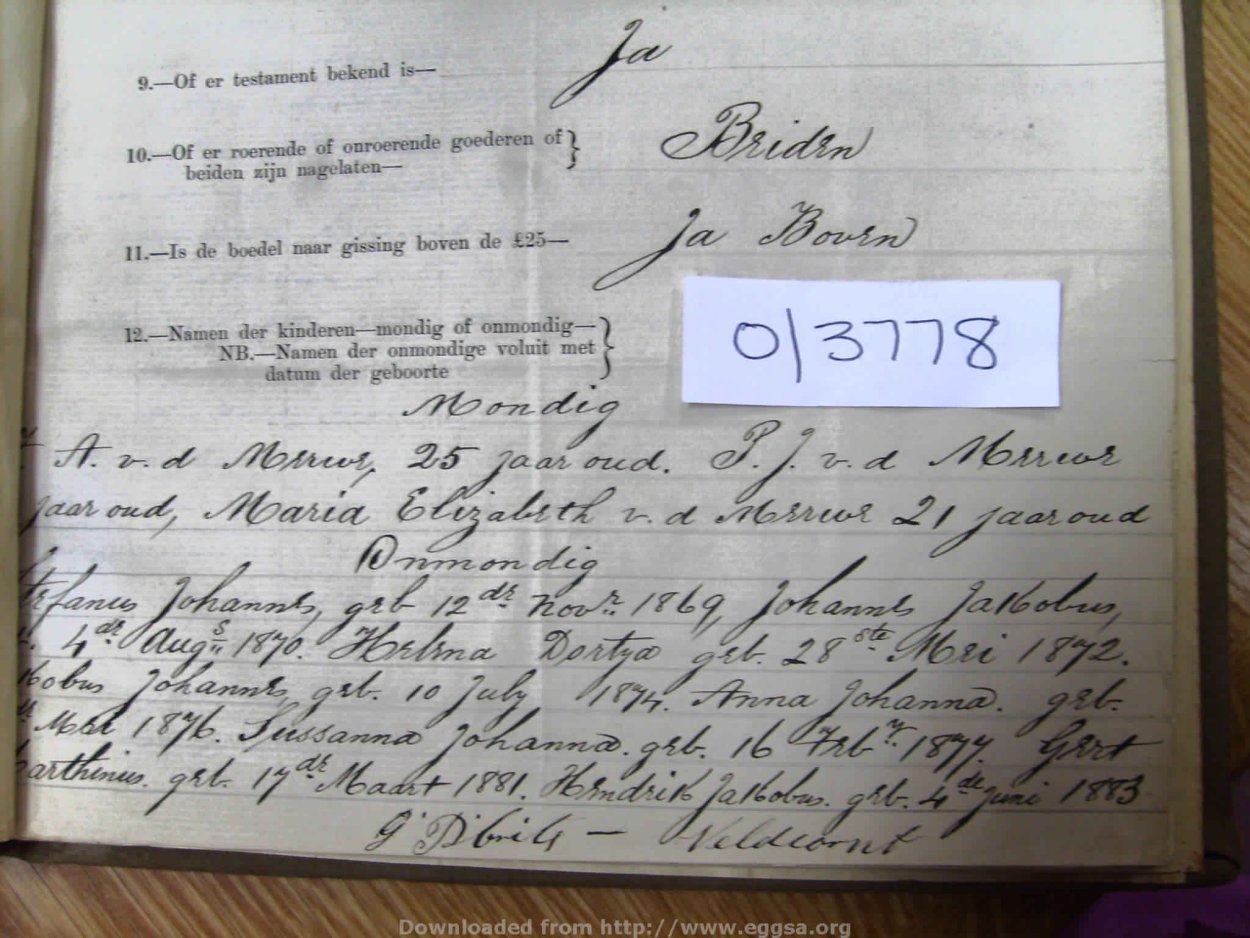 9.—Of er testament bekend is— Ja
10.—Of er roerende of onroerende goederen of } Beiden
beiden zijn nagelaten—
11.—Is de boedel naar gissing boven de £25— Ja Boven
12.—Namen der kinderen—mondig of onmondig—
NB.—Namen der onmondige voluit met }
datum der geboorte
0/3778
Mondig
A. v. d Merwe, 25 jaar oud. P. J. v. d Merwe
jaar oud, Maria Elizabeth v. d Merwe 21 jaar oud
Onmondig
Johannes, geb 12de Novr. 1869, Johannes Jakobus,
4de Augs 1870. Helena Dortya geb. 28ste Mei 1872.
Johannes, geb. 10 July 1874. Anna Johanna. geb.
Mei 1876. Sussanna Johanna. geb. 16 Feby. 1877. Gert
geb. 17de Maart 1881. Hendrik Jakobus. geb. 4de Juni 1883
— Veldcornt
Downloaded from http://www.eggsa.org